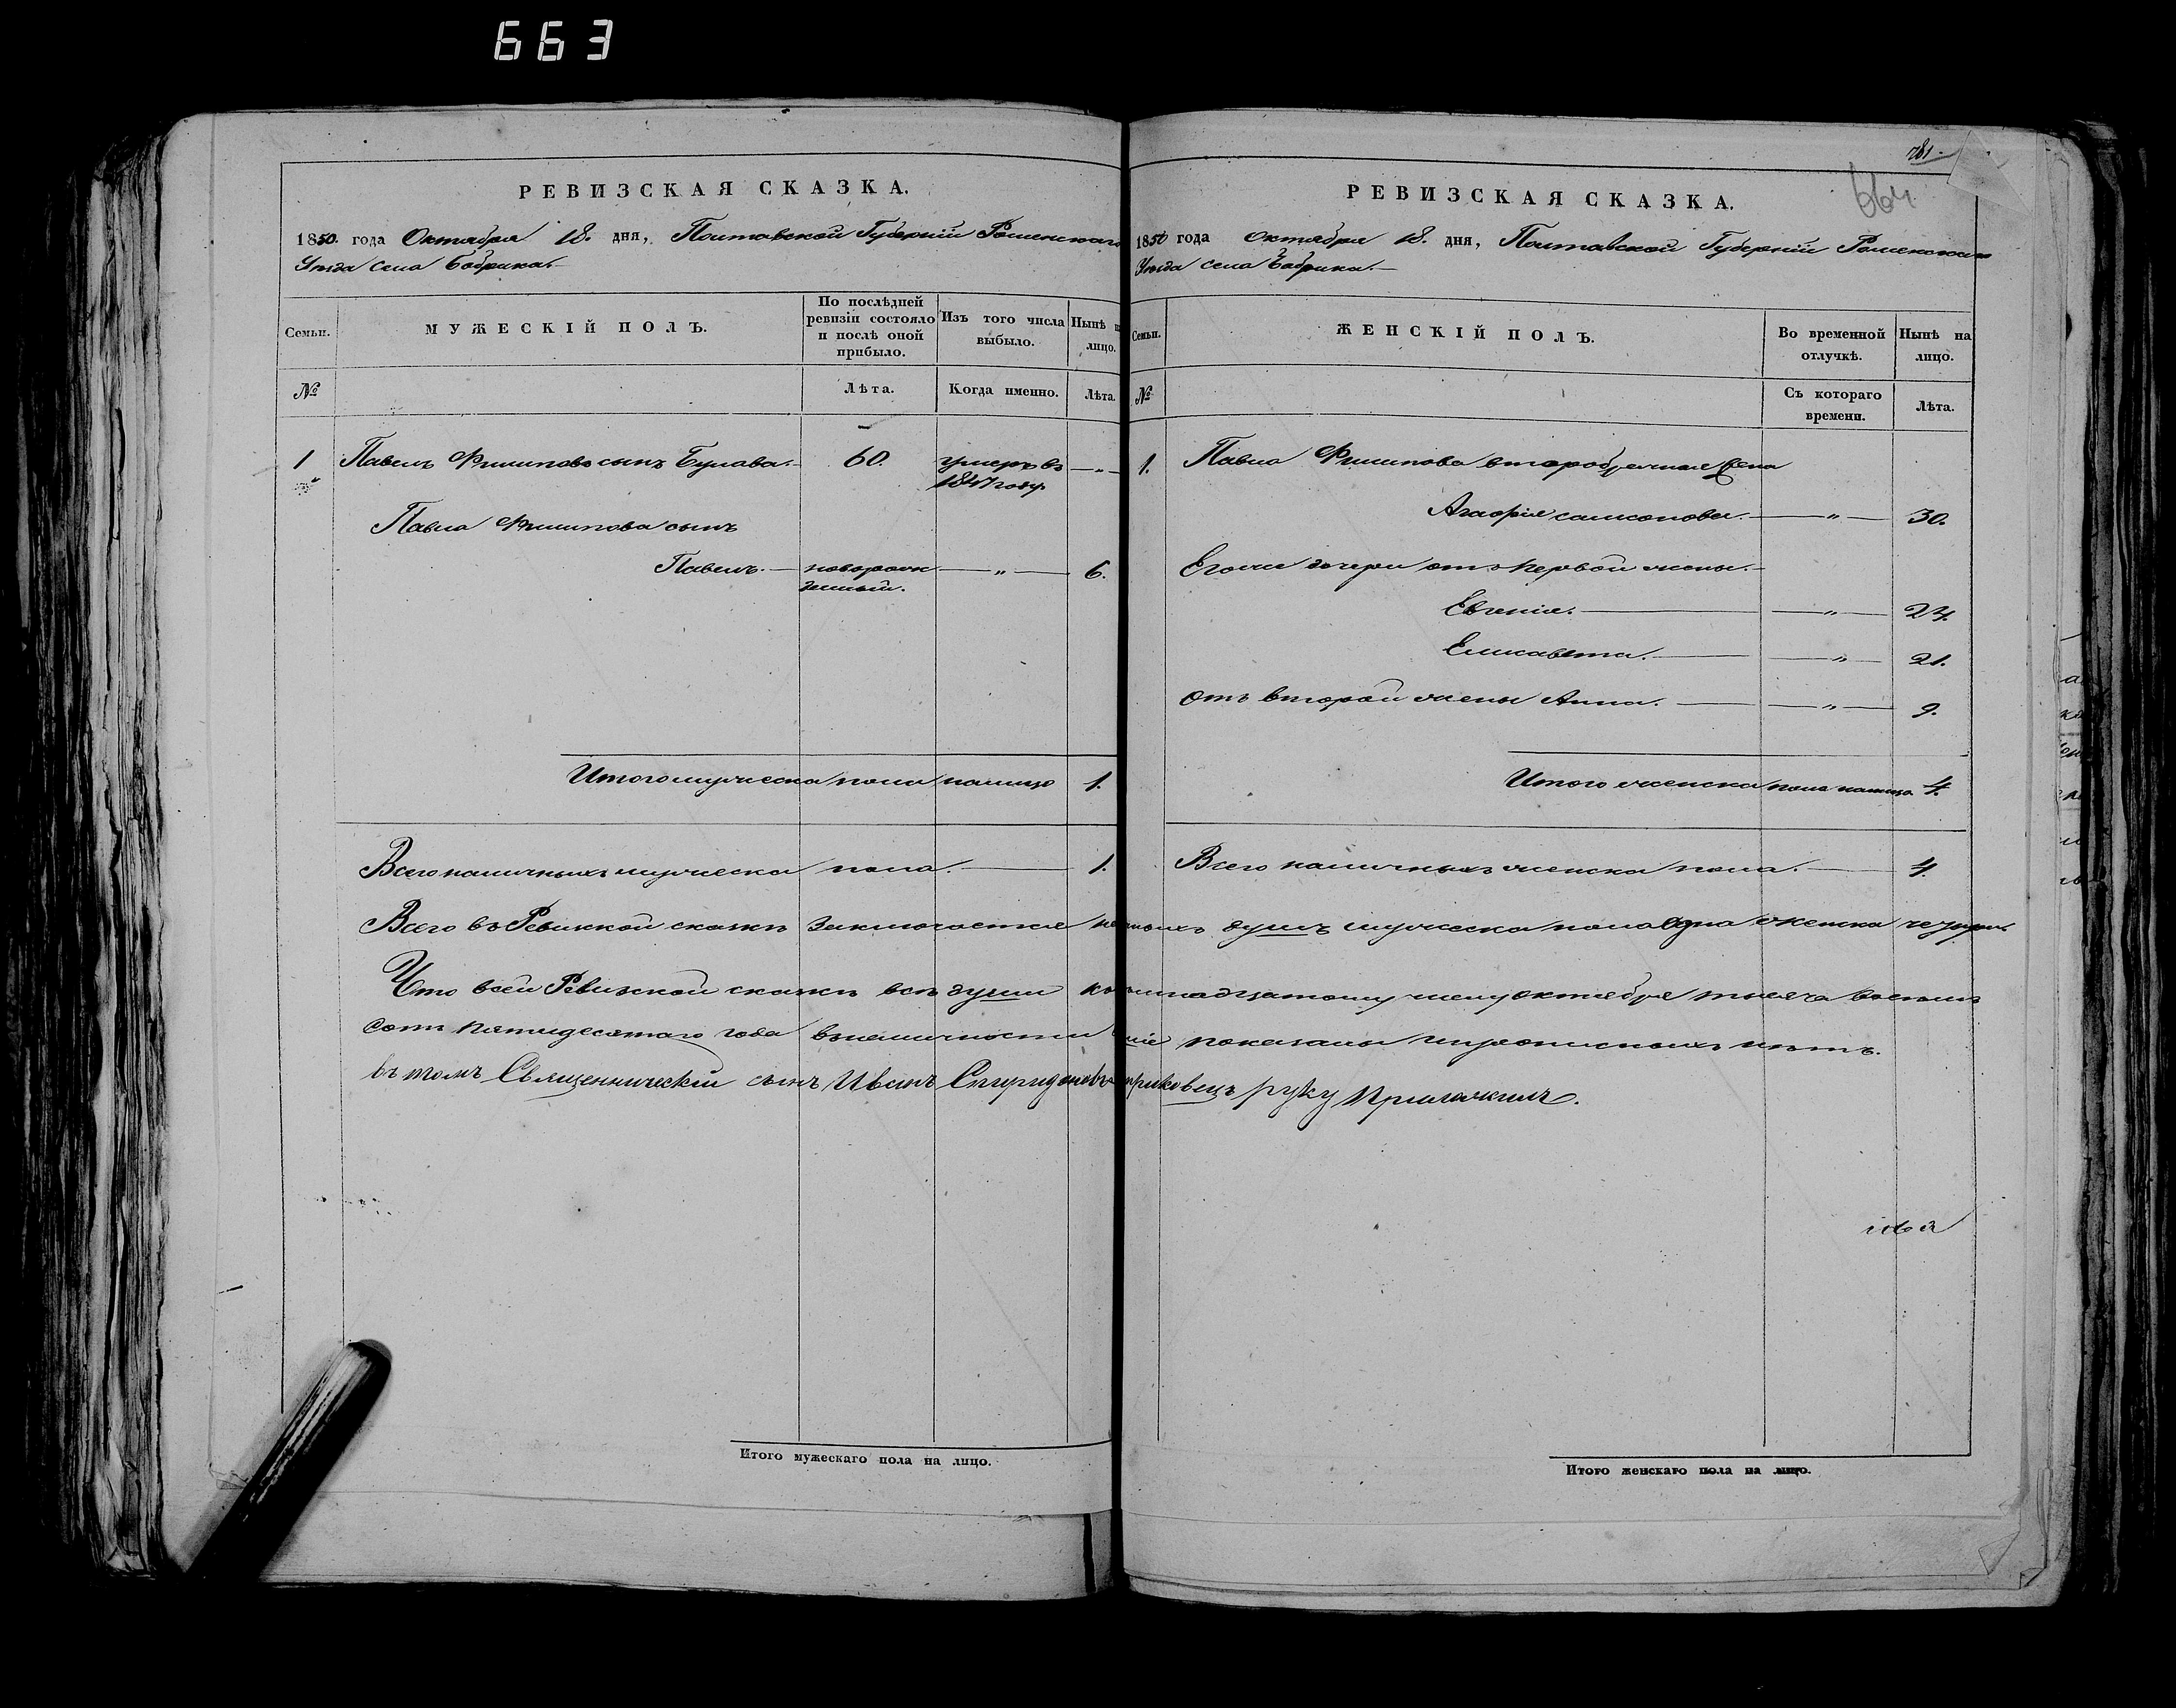 663
РЕВИЗСКАЯ СКАЗКА.
1850. года Октября 18. дня, Полтавской Губерніи Роменскаго
Уѣзда села Бобрика.
Семьи.
МУЖЕСКІЙ ПОЛЪ.
По послѣдней ревизіи состояло и послѣ оной прибыло.
Изъ того числа выбыло.
Нынѣ на лицо.
№
Лѣта.
Когда именно.
Лѣта.
1 Павелъ Филиповъ сынъ Булава. 60. умеръ въ — „ —
1847 году.
Павла Филипова сынъ
Павелъ. — новорож — „ — 6.
денный.
Итого мужеска пола налицо 1.
Всего наличныхъ мужеска пола. — 1.
281.
664
РЕВИЗСКАЯ СКАЗКА.
1850 года Октября 18. дня, Полтавской Губерніи Роменскаго
Уѣзда села Бобрика. —
Семьи.
ЖЕНСКІЙ ПОЛЪ.
Во временной отлучкѣ.
Нынѣ на лицо.
№
Съ котораго времени.
Лѣта.
1. Павла Филипова второбрачная жена
Агафія самсонова. — „ — 30.
Егоже дочери отъ первой жены. —
Евгенія. — „ — 24.
Елисавета. — „ — 21.
Отъ второй жены Анна. — „ — 9.
Итого женска пола налицо. 4.
Всего наличныхъ женска пола. — 4.
Всего въ Ревизкой сказкѣ заключается наличныхъ душъ мужеска пола одна женска четыри.
Что всей Ревизкой сказкѣ всѣ души к осмнадцатому числу октября тысяча восемь
сотъ пятидесятаго года въ наличности показаны и прописныхъ нѣтъ.
въ томъ Священническій сынъ Иванъ Спиридоновъ руку приложилъ.
Итого мужескаго пола на лицо.
Итого женскаго пола на лицо.